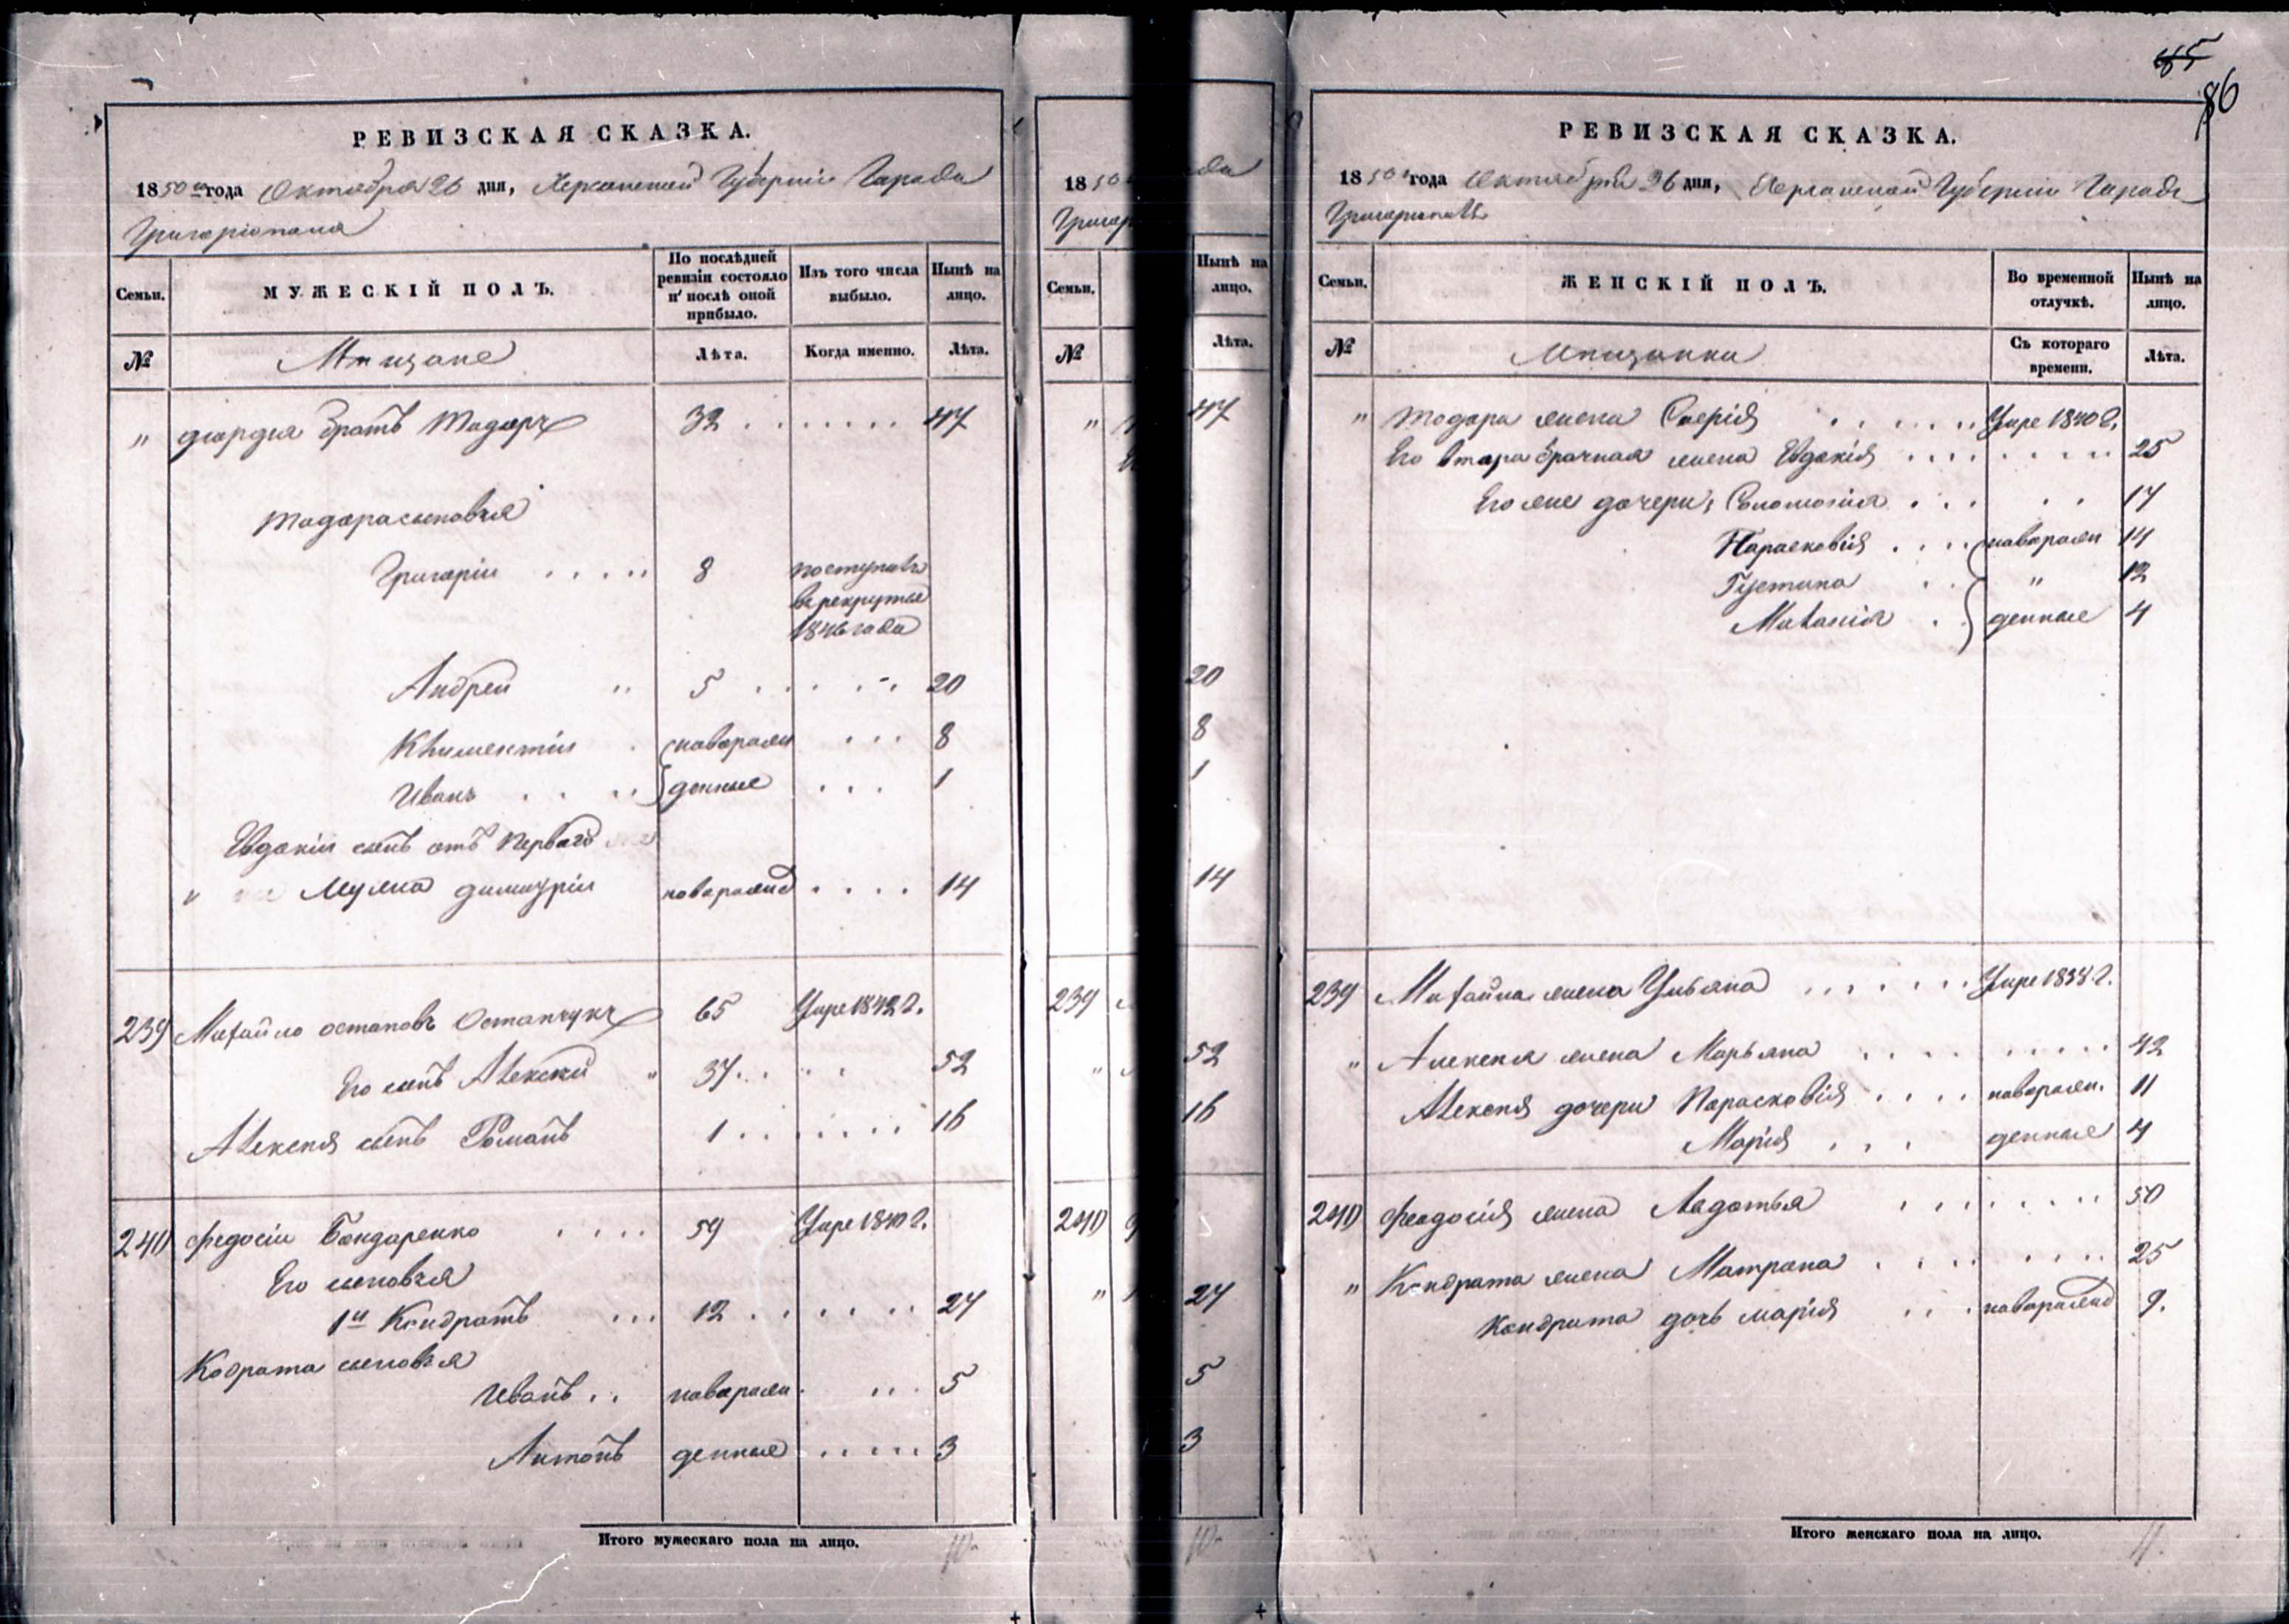 РЕВИЗСКАЯ СКАЗКА.
1850го года Октября 26 дня, Херсонской Губерніи Города
Григоріополя
Семьи.
МУЖЕСКІЙ ПОЛЪ.
По послѣдней ревизіи состояло и послѣ оной прибыло.
Изъ того числа выбыло.
Нынѣ на лицо.
№
Мѣщане
Лѣта.
Когда именно.
Лѣта.
" Братъ Тодоръ 32 47
Тодора сыновья
Григорій 8 поступилъ
въ рекруты
1846 года
Андрей " 5 20
Климентій новорож 8
Иванъ денные 1
Евдокіи сынъ отъ перваго
" мужа Димитрій новорожд 14
239 Михайло Остаповъ Остапчукъ 65 Умре 1842 г.
Его сынъ Алексѣй " 37 52
Алексѣя сынъ Романъ 1 16
240 Федосій Бондаренко 59 Умре 1840 г.
Его сыновья
1й Кондратъ 12 27
Кодрата сыновья
Иванъ новорож 5
Антонъ денные 3
Итого мужескаго пола на лицо. 10.
1850
Григор
Семьи.
Нынѣ на лицо.
№
Лѣта.
" 47
20
8
1
14
239
" 52
16
240
" 27
5
3
10.
85
86
РЕВИЗСКАЯ СКАЗКА.
1850го года Октября 26 дня, Херсонской Губерніи Города
Григоріополя
Семьи.
ЖЕНСКІЙ ПОЛЪ.
Во временной отлучкѣ.
Нынѣ на лицо.
№
Мѣщанки
Съ котораго времени.
Лѣта.
" Тодора жена Умре 1840 г.
Его второбрачная жена Евдокія 25
Его же дочери, Соломонія 17
Парасковія новорож 14
Густина " 12
Маланія денные 4
239 Михайла жена Ульяна Умре 1838 г.
" Алексѣя жена Марьяна 42
Алексѣя дочери Парасковія новорож. 11
Марія денные 4
240 Феодосія жена Авдотья 50
" Кондрата жена Матрона 25
Кондрата дочь Марія новорожд 9.
Итого женскаго пола на лицо. 11.